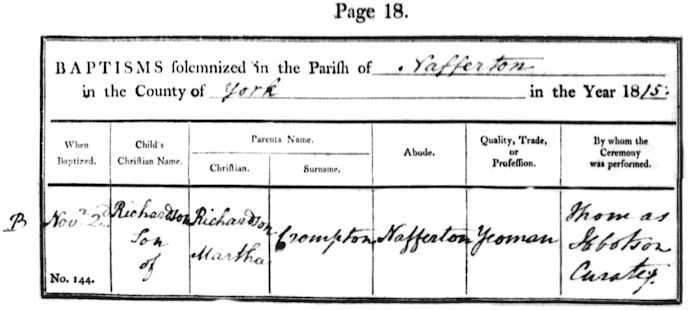 Page 18.
BAPTISMS solemnized in the Parish of Nafferton
in the County of York in the Year 1815.
When Baptized.
Child's Christian Name.
Parents Name.
Christian.
Surname.
Abode.
Quality, Trade, or Profession.
By whom the Ceremony was performed.
B
Novr. 2d
No. 144.
Richardson
Son
of
Richardson
Martha
Crompton
Nafferton
Yeoman
Thomas
Ibbotson
Curate